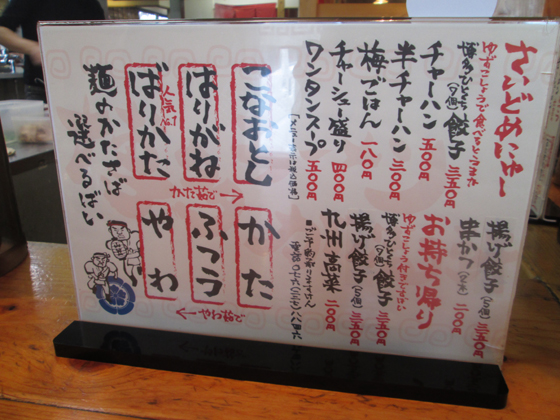 さいどめにゅー
ゆずこしょうで食べる
博多ひとくち餃子(9個) 三五〇円
チャーハン 五〇〇円
半チャーハン 三〇〇円
梅ごはん 一八〇円
チャーシュー盛り 四〇〇円
ワンタンスープ 五〇〇円
揚げ餃子(5個) 三五〇円
串カツ(2本) 二〇〇円
お持ち帰り
博多ひとくち餃子(9個) 三五〇円
揚げ餃子(5個) 三五〇円
九州高菜 二〇〇円
こなおとし
はりがね
人気No.1
ばりかた
かた
ふつう
やわ
麺のかたさば
選べるばい